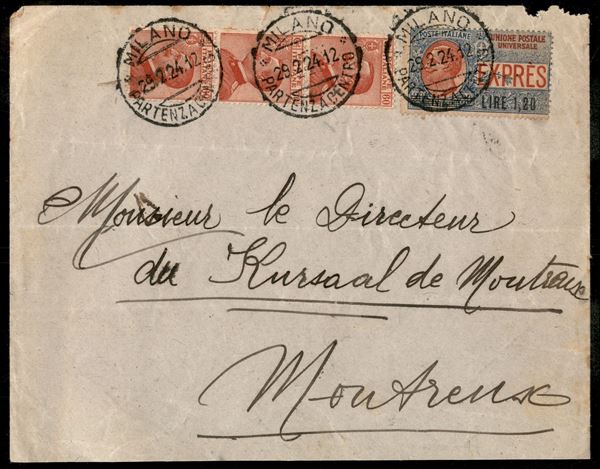 MILANO
29.2.24.12
PARTENZA CENTRO
MILANO
29.2.24.12
PARTENZA CENTRO
MILANO
29.2.24.12
PARTENZA
60
POSTE ITALIANE
UNIONE POSTALE
UNIVERSALE
EXPRÈS
LIRE 1,20
Monsieur le Directeur
du Kursaal de Montreux
Montreux